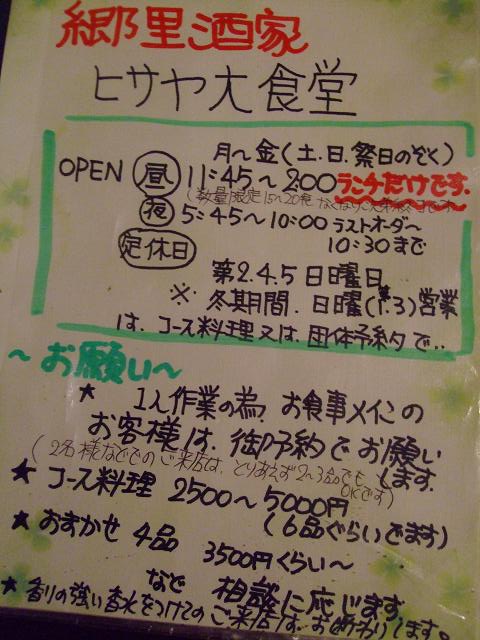 郷里酒家
ヒサヤ大食堂
月〜金(土.日.祭日のぞく)
OPEN 昼 11:45〜2:00 ランチだけです.
(数量限定15〜20食 なくなりしだい終了です)
夜 5:45〜10:00 ラストオーダー
10:30まで
定休日
第2.4.5 日曜日
※ 冬期間.日曜(第1.3)営業
は.コース料理又は.団体予約で..
〜お願い〜
★ 1人作業の為.お食事メインの
お客様は.御予約でお願い
します.
(2名様などでのご来店は.とりあえず2〜3品でも
OKです)
★ コース料理 2500〜5000円
(6品ぐらいでます)
★ おまかせ 4品
3500円くらい〜
など 相談に応じます
★ 香りの強い香水をつけてのご来店は.お断りします。